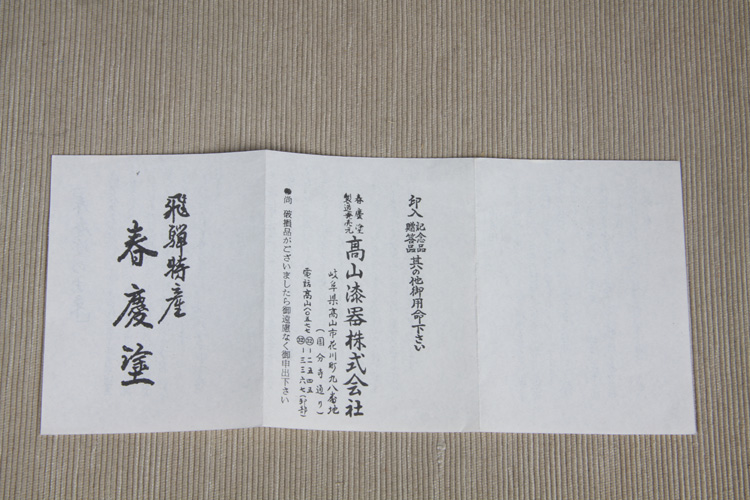 印入 記念品 贈答品 其の他御用命下さい
春慶塗
製造兼売元
高山漆器株式会社
岐阜県高山市花川町九八番地
(国分寺通り)
電話高山(〇五七七
㉜)二五四五
㉜)三三六七(卸部)
●尚 破損品がございましたら御遠慮なく御申出下さい
飛騨特産
春慶塗